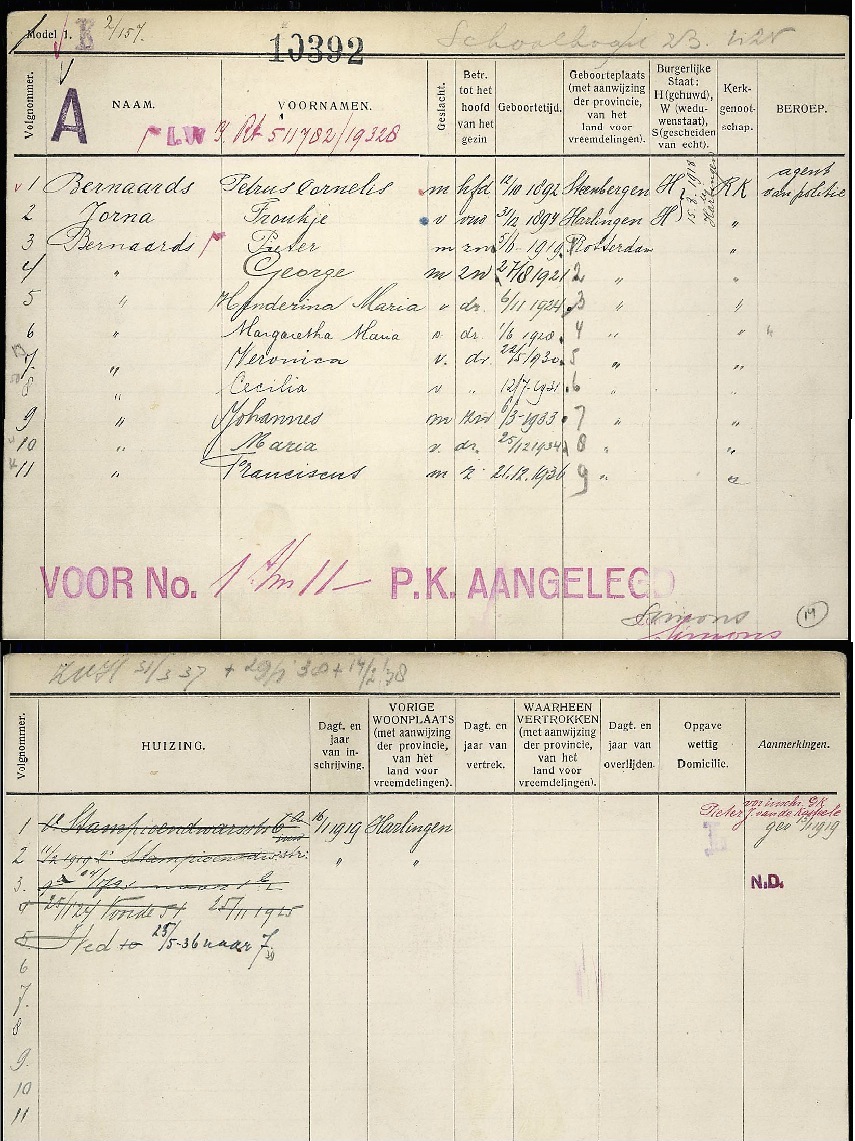 Model 1. B 2/157.
10392
Volgnommer.
A
NAAM.
VOORNAMEN.
Geslacht.
Betr. tot het hoofd van het gezin
Geboortetijd.
Geboorteplaats (met aanwijzing der provincie, van het land voor vreemdelingen).
Burgerlijke Staat: H (gehuwd), W (weduwenstaat), S (gescheiden van echt).
Kerkgenootschap.
BEROEP.
LW Rt 511782/19328
1 Bernaards Petrus Cornelis m hfd 12/10 1892 Steenbergen H 15.8.1918 Harlingen RK agent van politie
2 Jorna Froukje v vrw 31/12 1894 Harlingen H "
3 Bernaards Pieter m zn 5/6 1919 Rotterdam "
4 " George m zn 27/8 1921 2 " "
5 " Henderina Maria v dr. 6/11 1924 3 " "
6 " Margaretha Maria v dr. 1/6 1928 4 " "
7. " Veronica v. dr. 22/5 1930 5 "
8 Cecilia v " 12/7-1931 6
9 " Johannes m zn 6/3-1933 7 " "
10 " Maria v. dr. 25/12 1934 8 " "
11 " Franciscus m z 21.12.1936 9 " "
VOOR No. 1 t/m 11 P.K. AANGELEGD
Simons
Simons
19
31/3 37 + 29/7 38 +
Volgnommer.
HUIZING.
Dagt. en jaar van inschrijving.
VORIGE WOONPLAATS (met aanwijzing der provincie, van het land voor vreemdelingen).
Dagt. en jaar van vertrek.
WAARHEEN VERTROKKEN (met aanwijzing der provincie, van het land voor vreemdelingen).
Dagt. en jaar van overlijden.
Opgave wettig Domicilie.
Aanmerkingen.
1 Stampioendwarsstr 6a 16/1 1919 Harlingen
Pieter
gev 1919
2 " "
3. N.D.
4 25/11 24 Voorde 51 25/11 1925
5 25/5-36 naar 7
6
7.
8
9.
10
11